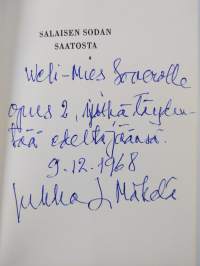 SALAISEN SODAN
SAATOSTA
Weli-Mies Soverolle
opus 2, joka täyden-
tää edeltäjäänsä.
9.12.1968
Jukka L. Mäkelä